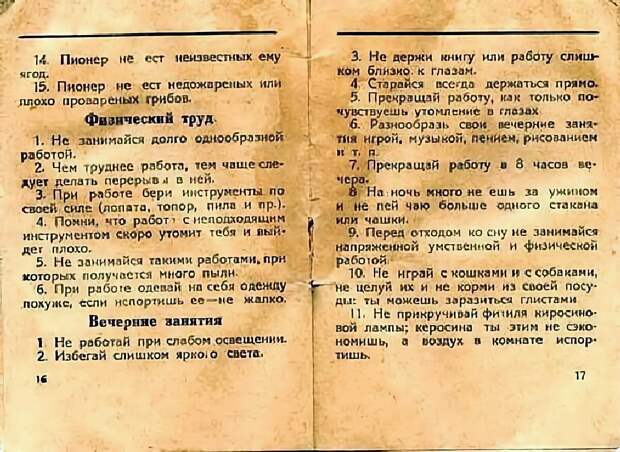 14. Пионер не ест неизвестных ему
ягод.
15. Пионер не ест недожареных или
плохо провареных грибов.
Физический труд.
1. Не занимайся долго однообразной
работой.
2. Чем труднее работа, тем чаще сле-
дует делать перерывы в ней.
3. При работе бери инструменты по
своей силе (лопата, топор, пила и пр.).
4. Помни, что работа с неподходящим
инструментом скоро утомит тебя и вый-
дет плохо.
5. Не занимайся такими работами, при
которых получается много пыли.
6. При работе одевай на себя одежду
похуже, если испортишь ее—не жалко.
Вечерние занятия
1. Не работай при слабом освещении.
2. Избегай слишком яркого света.
16
3. Не держи книгу или работу слиш-
ком близко к глазам.
4. Старайся всегда держаться прямо.
5. Прекращай работу, как только по-
чувствуешь утомление в глазах
6. Разнообразь свои вечерние заня-
тия игрой, музыкой, пением, рисованием
и т. п.
7. Прекращай работу в 8 часов ве-
чера.
8 На ночь много не ешь за ужином
и не пей чаю больше одного стакана
или чашки.
9. Перед отходом ко сну не занимайся
напряженной умственной и физической
работой.
10. Не играй с кошками и с собаками,
не целуй их и не корми из своей посу-
ды: ты можешь заразиться глистами
11. Не прикручивай фитиля киросино-
вой лампы; керосина ты этим не сэко-
номишь, а воздух в комнате испор-
тишь.
17